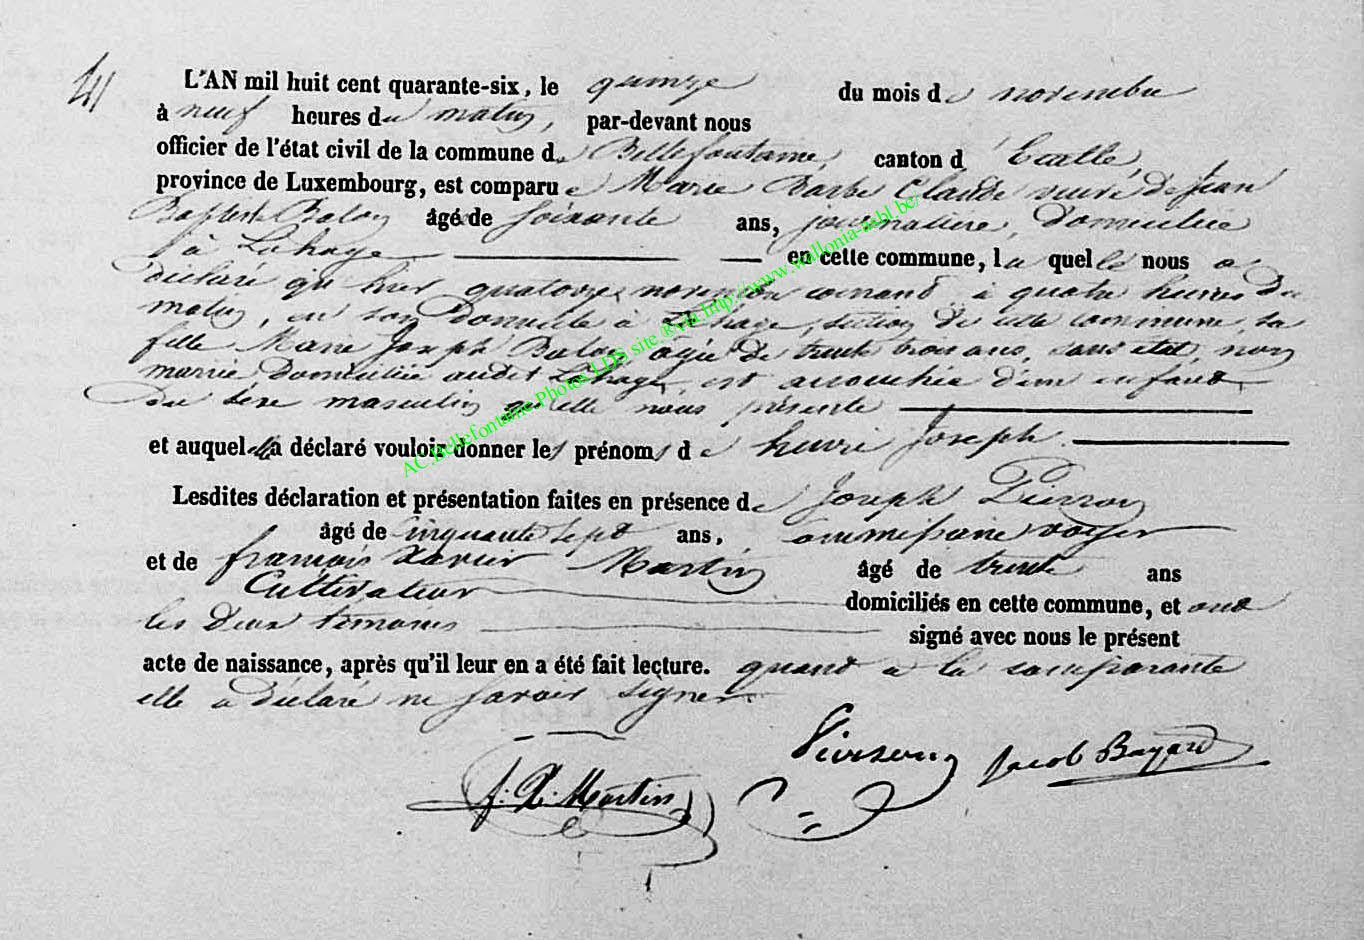 41
L'AN mil huit cent quarante-six, le quinze du mois de novembre
à neuf heures du matin, par-devant nous
officier de l'état civil de la commune de Bellefontaine, canton d'Etalle,
province de Luxembourg, est comparue Marie Barbe Claude veuve de Jean
Baptiste Balon âgé de soixante ans, journalière, domiciliée
à Lahage en cette commune, la quelle nous a
déclaré qu'hier quatorze novembre courant à quatre heures du
matin, en son domicile à Lahage, section de cette commune, sa
fille Marie Joseph Balon agée de trente trois ans, sans état, non
mariée, domiciliée audit Lahage, est accouchée d'un enfant
du sexe masculin qu'elle nous présente
et auquel elle a déclaré vouloir donner les prénoms de henri Joseph.
Lesdites déclaration et présentation faites en présence de Joseph
âgé de cinquante sept ans, commissaire voyer
et de françois Xavier Martin âgé de trente ans
Cultivateur domiciliés en cette commune, et ont
les deux témoins signé avec nous le présent
acte de naissance, après qu'il leur en a été fait lecture. quant à la comparante
elle a déclaré ne savoir signer.
Jacob Bayard
f. X. Martin
AC.Bellefontaine.Photos LDS site ®via http://www.wallonia-asbl.be/